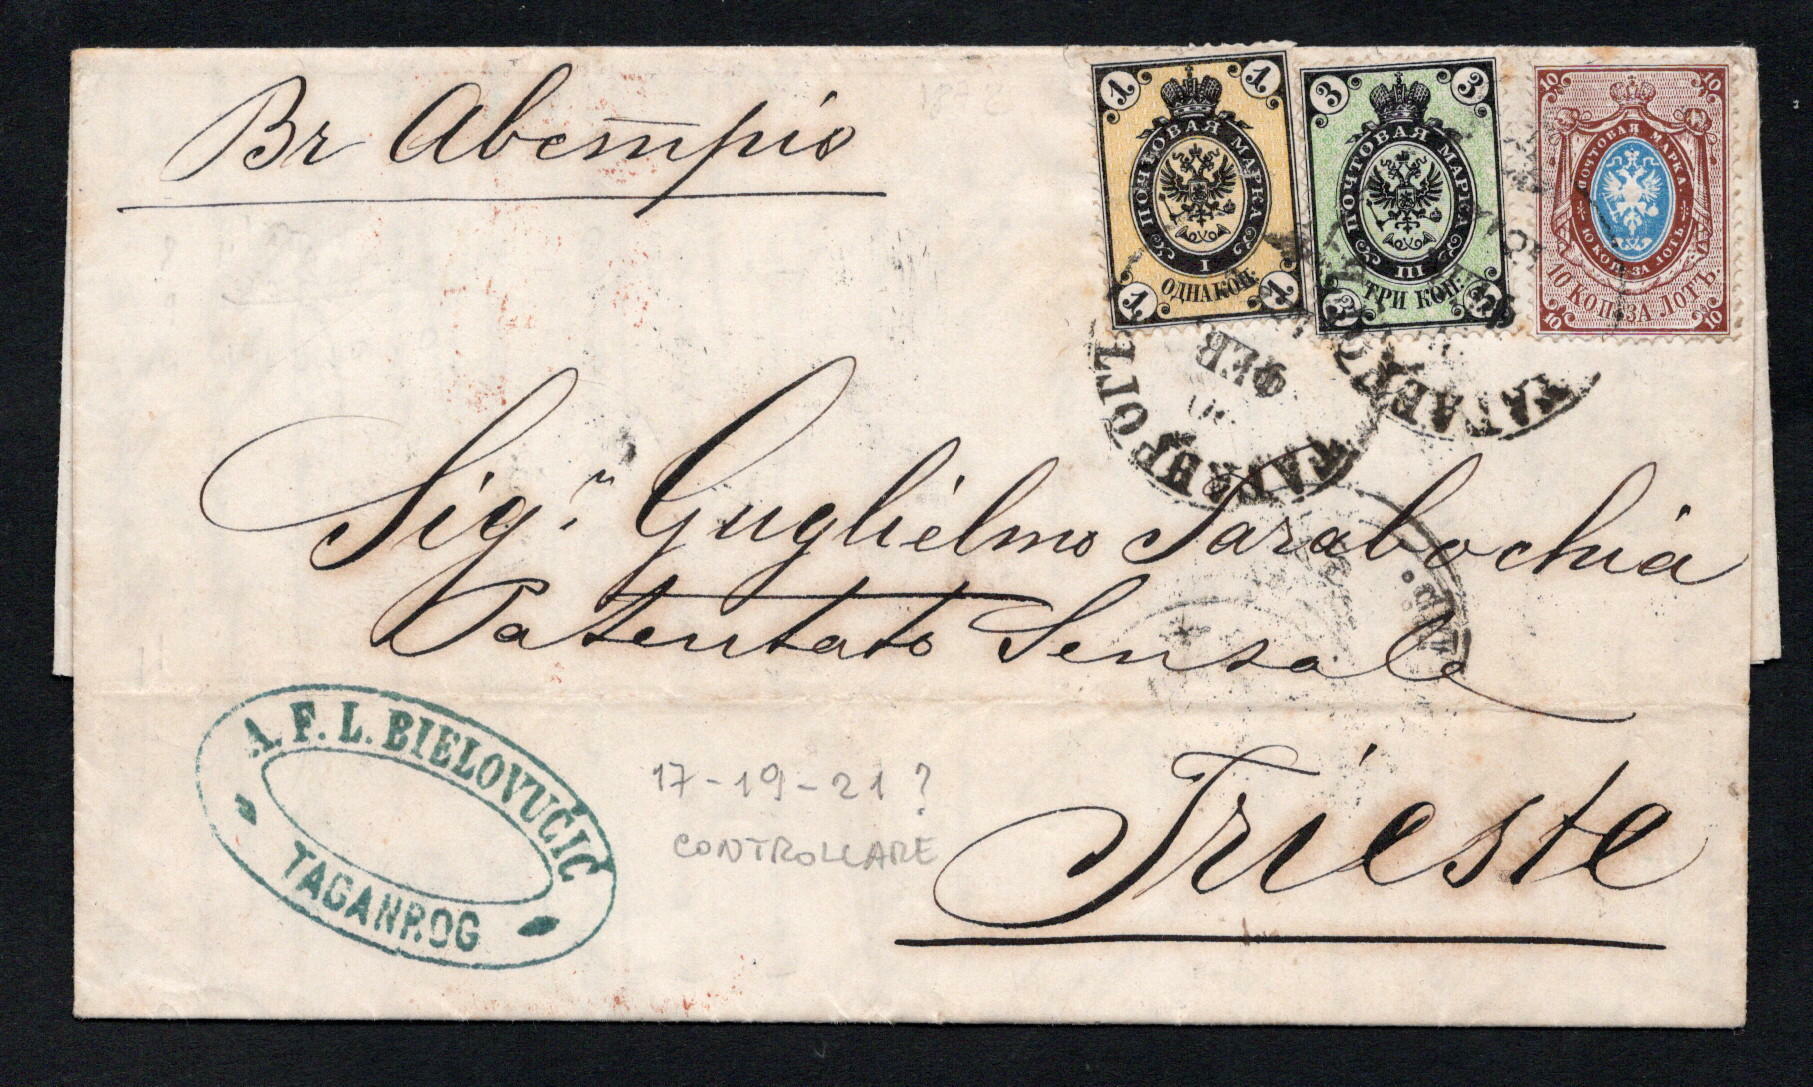 Вг Австрію
1 1
ПОЧТОВАЯ МАРКА
I
ОДНА КОП:
1 1
3 3
ПОЧТОВАЯ МАРКА
III
ТРИ КОП:
3 3
10 10
ПОЧТОВАЯ МАРКА.
10 КОП. ЗА ЛОТЪ
10 КОП. ЗА ЛОТЪ.
10 10
ФЕВ
ТАГАНРОГЪ
ТАГАНРОГ
Sigr. Guglielmo Tarabochia
Patentato Sensale
Trieste
A. F. L. BIELOVUČIĆ
TAGANROG
17-19-21?
CONTROLLARE